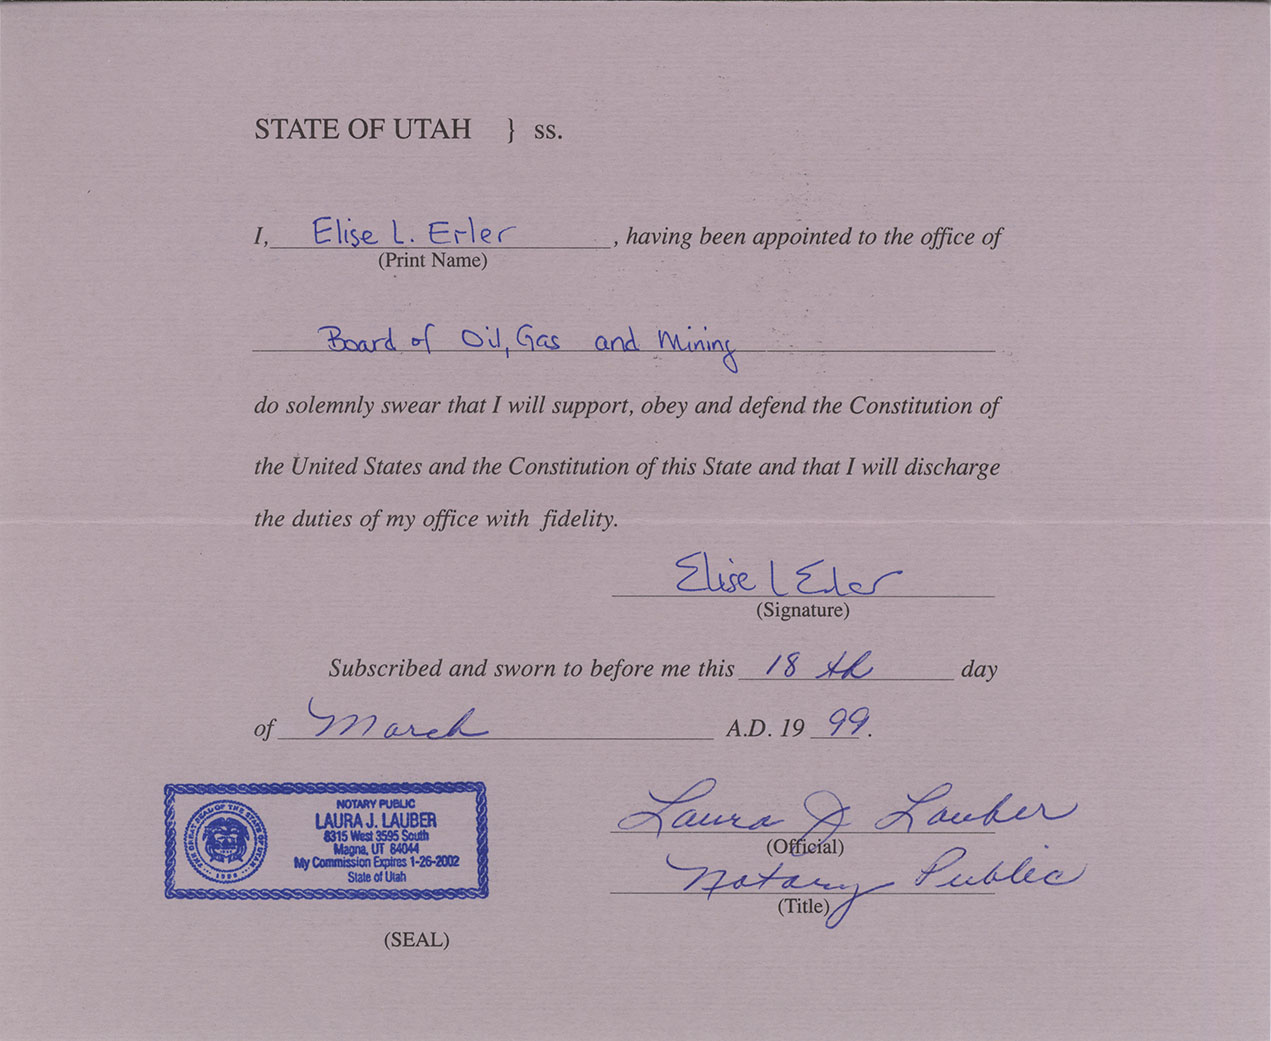 STATE OF UTAH } ss.
I, Elise L. Erler , having been appointed to the office of
(Print Name)
Board of Oil, Gas and Mining
do solemnly swear that I will support, obey and defend the Constitution of
the United States and the Constitution of this State and that I will discharge
the duties of my office with fidelity.
Elise L Erler
(Signature)
Subscribed and sworn to before me this 18th day
of March A.D. 19 99.
NOTARY PUBLIC
LAURA J. LAUBER
8315 West 3595 South
Magna, UT 84044
My Commission Expires 1-26-2002
State of Utah
THE GREAT SEAL OF THE STATE OF UTAH
1896
(SEAL)
Laura J Lauber
(Official)
Notary Public
(Title)